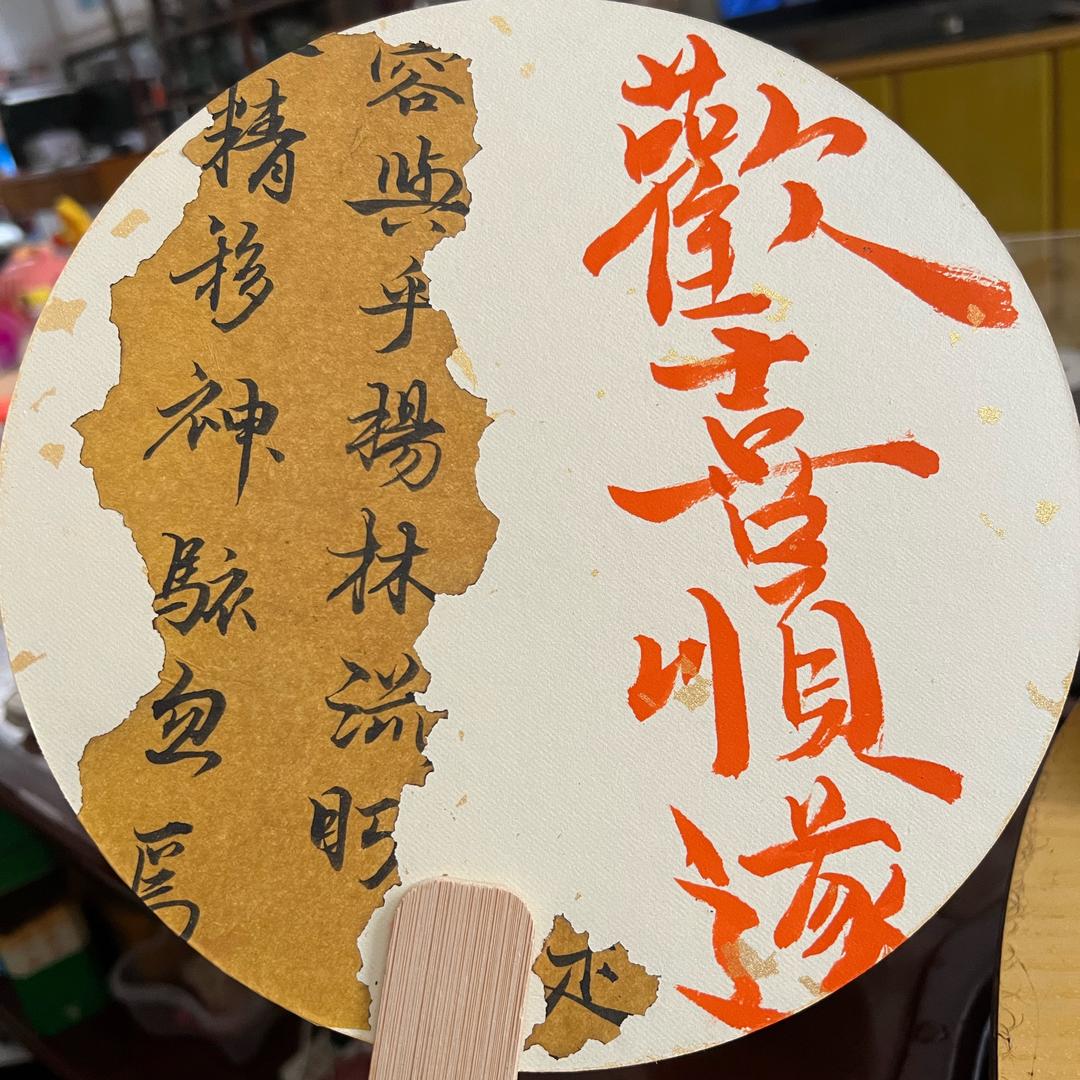 歡喜順遂
容與乎楊林流眄
精移神駭忽焉